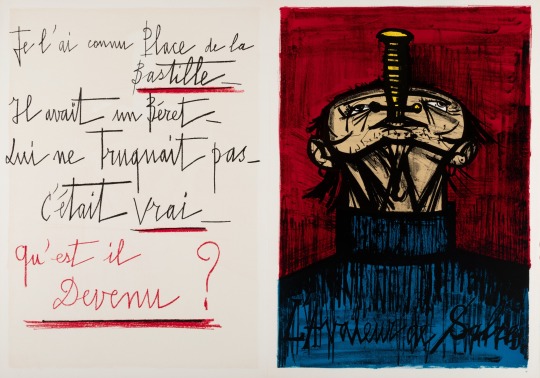 Je l'ai connu Place de la
Bastille_
Il avait un Béret_
Lui ne Truquait pas_
C'était Vrai_
qu'est il
Devenu ?
L'Avaleur de Sabre